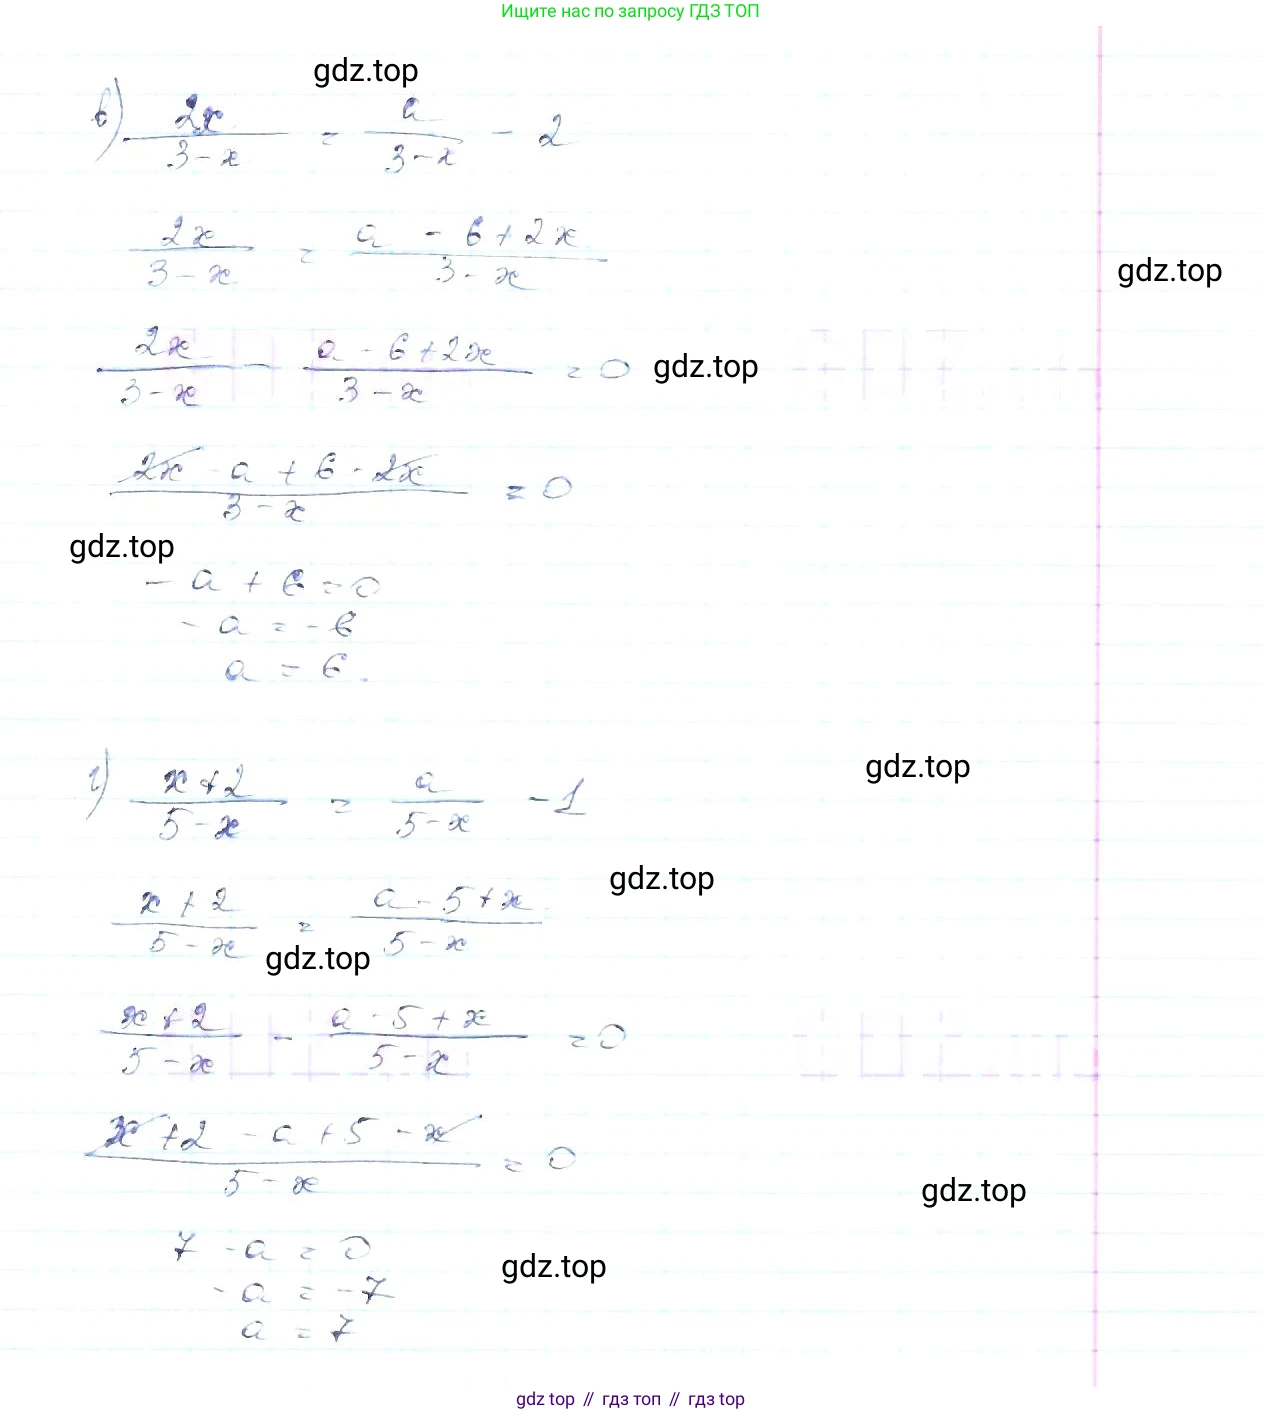 Ищите нас по запросу ГДЗ ТОП
gdz.top
в) 2x/(3-x) = a/(3-x) - 2
2x/(3-x) = (a - 6 + 2x)/(3-x)
gdz.top
2x/(3-x) - (a - 6 + 2x)/(3-x) = 0 gdz.top
(2x - a + 6 - 2x)/(3-x) = 0
gdz.top
- a + 6 = 0
- a = -6
a = 6.
г) (x+2)/(5-x) = a/(5-x) - 1
gdz.top
gdz.top
(x+2)/(5-x) = (a-5+x)/(5-x)
gdz.top
(x+2)/(5-x) - (a-5+x)/(5-x) = 0
(x+2 - a + 5 - x)/(5-x) = 0
gdz.top
7 - a = 0
gdz.top
- a = -7
a = 7
gdz top // гдз топ // gdz top